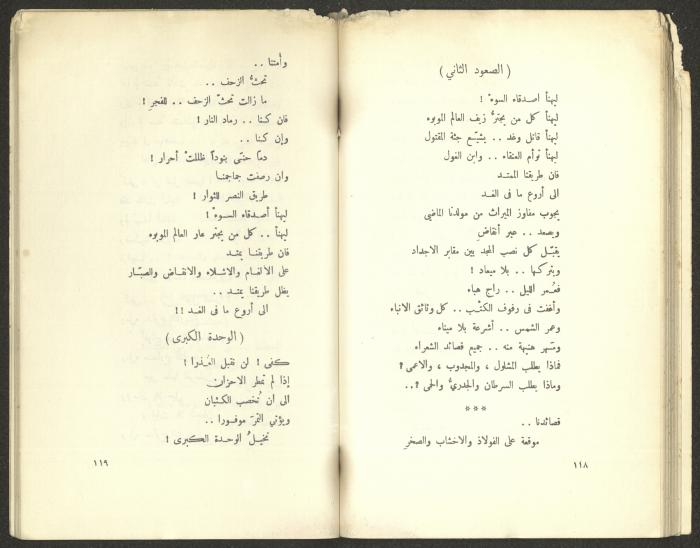 ( الصعود الثاني )
ليهنأ اصدقاء السوءْ !
ليهنأ كل من يجترُّ زيف العالم الموبوء
ليهنأ قاتل وغد .. يشيّع جثة المقتول
ليهنأ توأم العنقاء .. وابن الغول
فان طريقنا الممتد
الى أروع ما في الغد
يجوب مفاوز الميراث من مولدنا الماضي
ويصعد .. عبر أنقاضِ
يقبّل كل نصب المجد بين مقابر الاجداد
ويتركها .. بلا ميعاد !
فعُمر الليل .. راح هباء
وأغفت في رفوف الكتْب .. كل وثائق الانباء
وعمر الشمس .. أشرعة بلا ميناء
وتسهر هنيهة منه .. جميع قصائد الشعراء
فماذا يطلب المشلول ، والمجدوب ، والاعمى ؟
وماذا يطلب السرطان والجدريُّ والحمى ؟..
***
قصائدنا ..
موقعة على الفولاذ والاخشاب والصخرِ
١١٨
وأمتنا ..
تحثُّ الزحف ..
ما زالت تحثّ الزحف .. للفجرِ !
فان كنا .. رماد النار !
وإن كنا ..
دماً حتى بنوداً ظللتْ أحرار !
وان رصفت جماجمنا
طريق النصر للثوار !
ليهنأ أصدقاء السوءْ !
ليهنأ .. كل من يجتر عار العالم الموبوء
فان طريقنا يمتد
على الالغام والاشلاء والانقاض والصبّار
يظل طريقنا يمتد ..
الى أروع ما في الغد !!
( الوحدة الكبرى )
كفى ! لن نقبل العُذرا !
إذا لم تمطر الاحزان
الى ان تُخصب الكثبان
ويؤتي التمرَ موفورا ..
نخيلُ الوحدة الكبرى !
١١٩